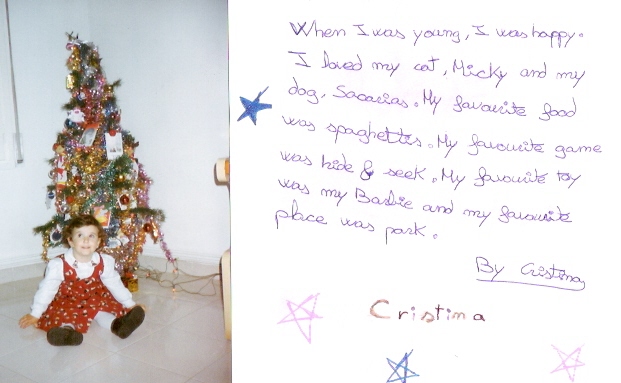 When I was young, I was happy.
I loved my cat, Micky and my
dog, Sacarias. My favourite food
was spaghettis. My favourite game
was hide & seek. My favourite toy
was my Barbie and my favourite
place was park.
By Cristina
Cristina